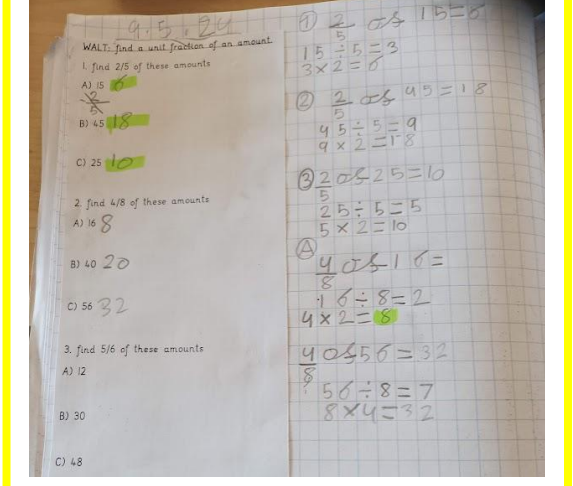 9.5.24
WALT: find a unit fraction of an amount.
1. find 2/5 of these amounts
A) 15 6
2
5
B) 45 18
C) 25 10
2. find 4/8 of these amounts
A) 16 8
B) 40 20
C) 56 32
3. find 5/6 of these amounts
A) 12
B) 30
C) 48
① 2/5 of 15=6
15÷5=3
3×2=6
② 2/5 of 45=18
45÷5=9
9×2=18
③ 2/5 of 25=10
25÷5=5
5×2=10
Ⓐ
4/8 of 16=
16÷8=2
4×2=8
4/8 of 56=32
56÷8=7
8×4=32